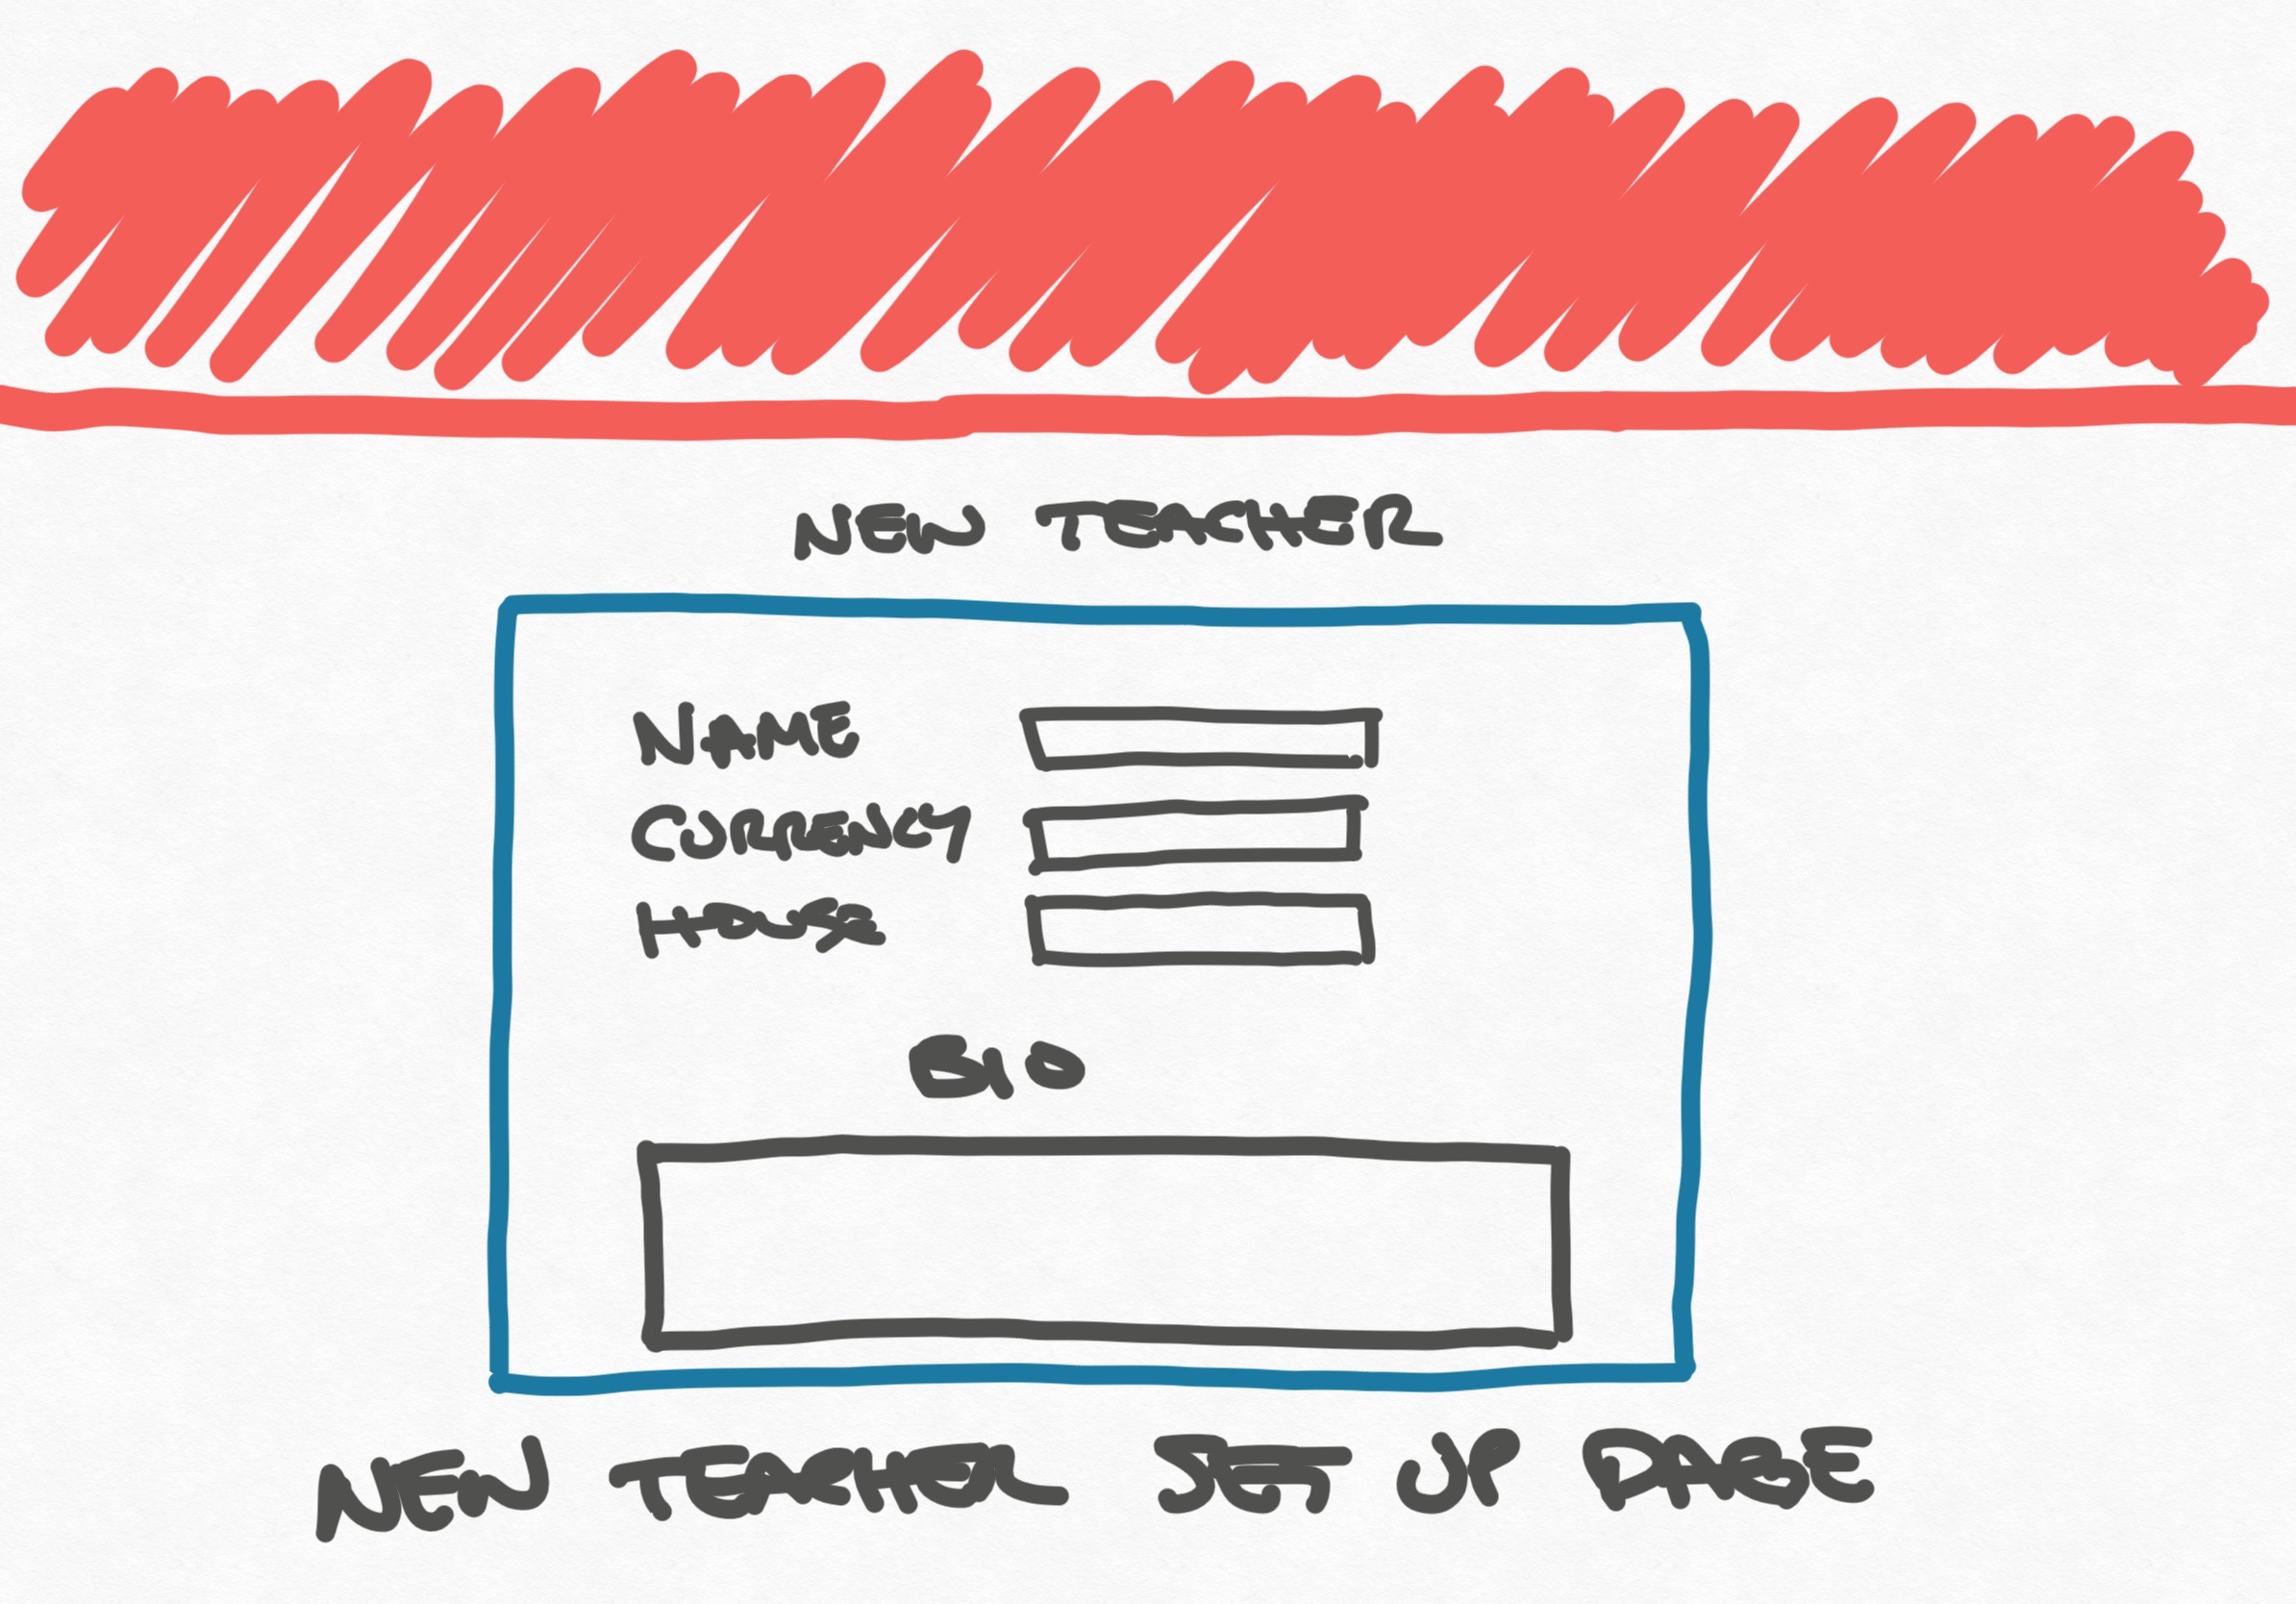 NEW TEACHER
NAME
CURRENCY
HOUSE
BIO
NEW TEACHER SET UP PAGE